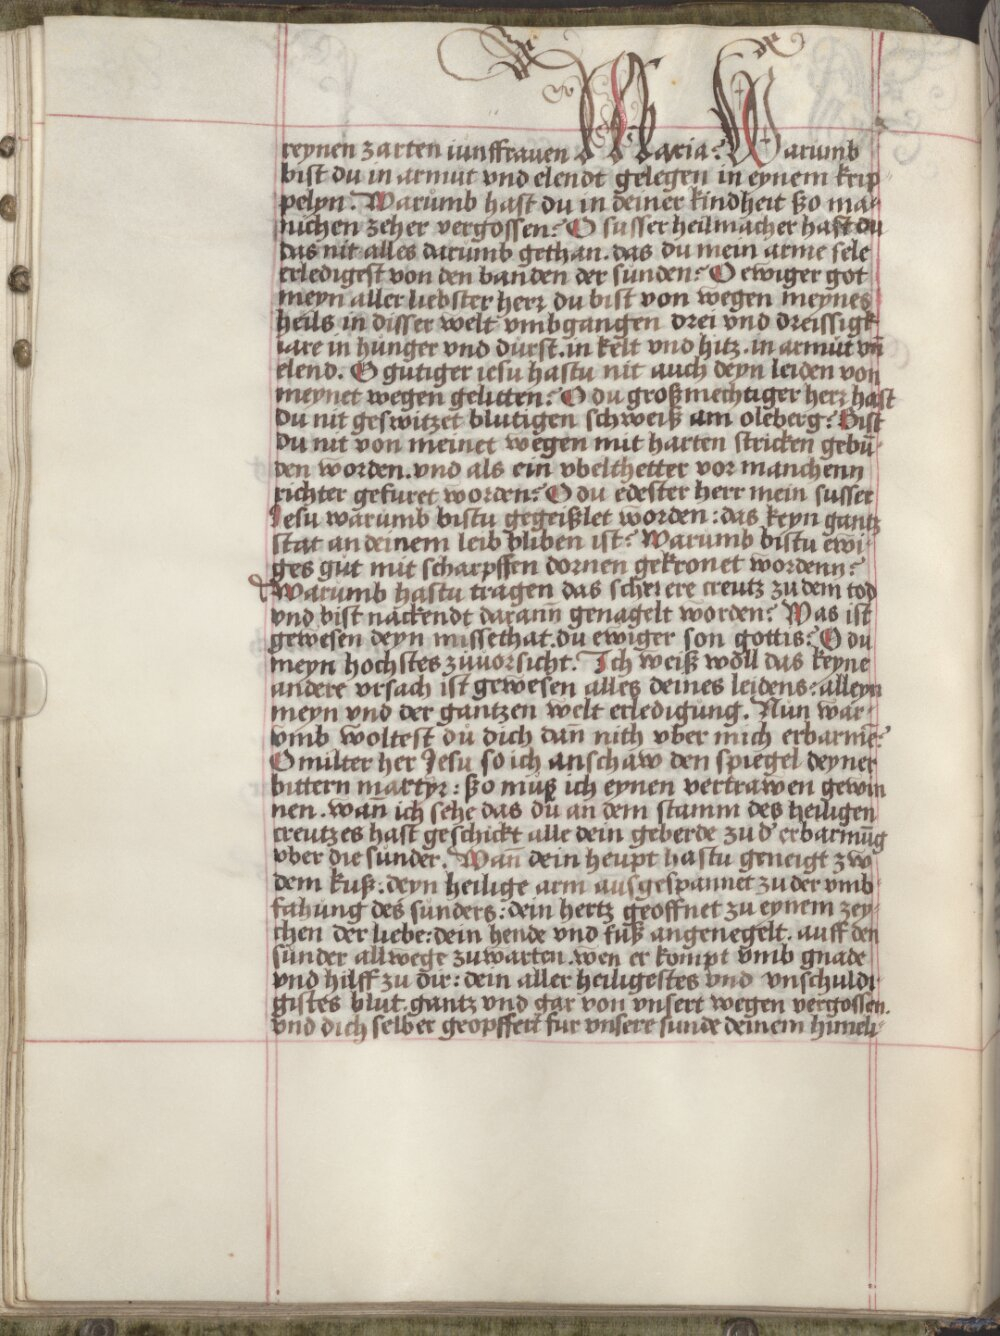 reynen zarten iunffrauen Maria? Warumb
bist du in armut vnd elendt gelegen in eynem krip
pelyn. Warumb hast du in deiner kindheit ßo ma-
nichen zeher vergossen? O susser heilmacher hast du
das nit alles darumb gethan. das du mein arme sele
erledigest von den banden der sunden? O ewiger got
meyn aller liebster herz du bist von wegen meynes
heils in disser welt vmbgangen drei vnd dreissigk
iare in hunger vnd durst. in kelt vnd hitz. in armut vn̄
elend. O gutiger iesu hastu nit auch deyn leiden von
meynet wegen gelitten? O du großmechtiger herz hast
du nit geswitzet blutigen schweiß am oleberg? Bist
du nit von meinet wegen mit harten stricken gebū-
den worden. vnd als ein vbelthetter vor manchenn
richter gefuret worden? O du edester herr mein susser
Jesu warumb bistu gegeißlet worden: das keyn gantz
stat an deinem leib bliben ist? Warumb bistu ewi-
ges gut mit scharpffen dornen gekronet wordenn?
Warumb hastu tragen das scherere creutz zu dem tod
vnd bist nackendt darann̄ genagelt worden? Was ist
gewesen deyn missethat. du ewiger son gottis? O du
meyn hochstes zuuorsicht. Ich weiß woll das keyne
andere vrsach ist gewesen alles deines leidens: alleyn
meyn vnd der gantzen welt erledigung. Nun war-
vmb woltest du dich dan̄ nith vber mich erbarmē?
O milter her Jesu so ich anschaw den spiegel deyner
bittern martyr: ßo muß ich eynen vertrawen gewin
nen. wan ich sehe das du an dem stamm des heiligen
creutzes hast geschickt alle dein geberde zu d' erbarmūg
vber die sunder. Wan̄ dein heupt hastu geneigt zw
dem kuß. deyn heilige arm ausgespannet zu der vmb-
fahung des sunders: dein hertz geoffnet zu eynem zey-
chen der liebe: dein hende vnd fuß angenegelt. auff den
sunder allwege zuwarten. wen er kompt vmb gnade
vnd hilff zu dir: dein aller heiligestes vnd vnschuldi-
gistes blut. gantz vnd gar von vnsert wegen vergossen.
vnd dich selber geopffert fur vnsere sunde deinem himeli-